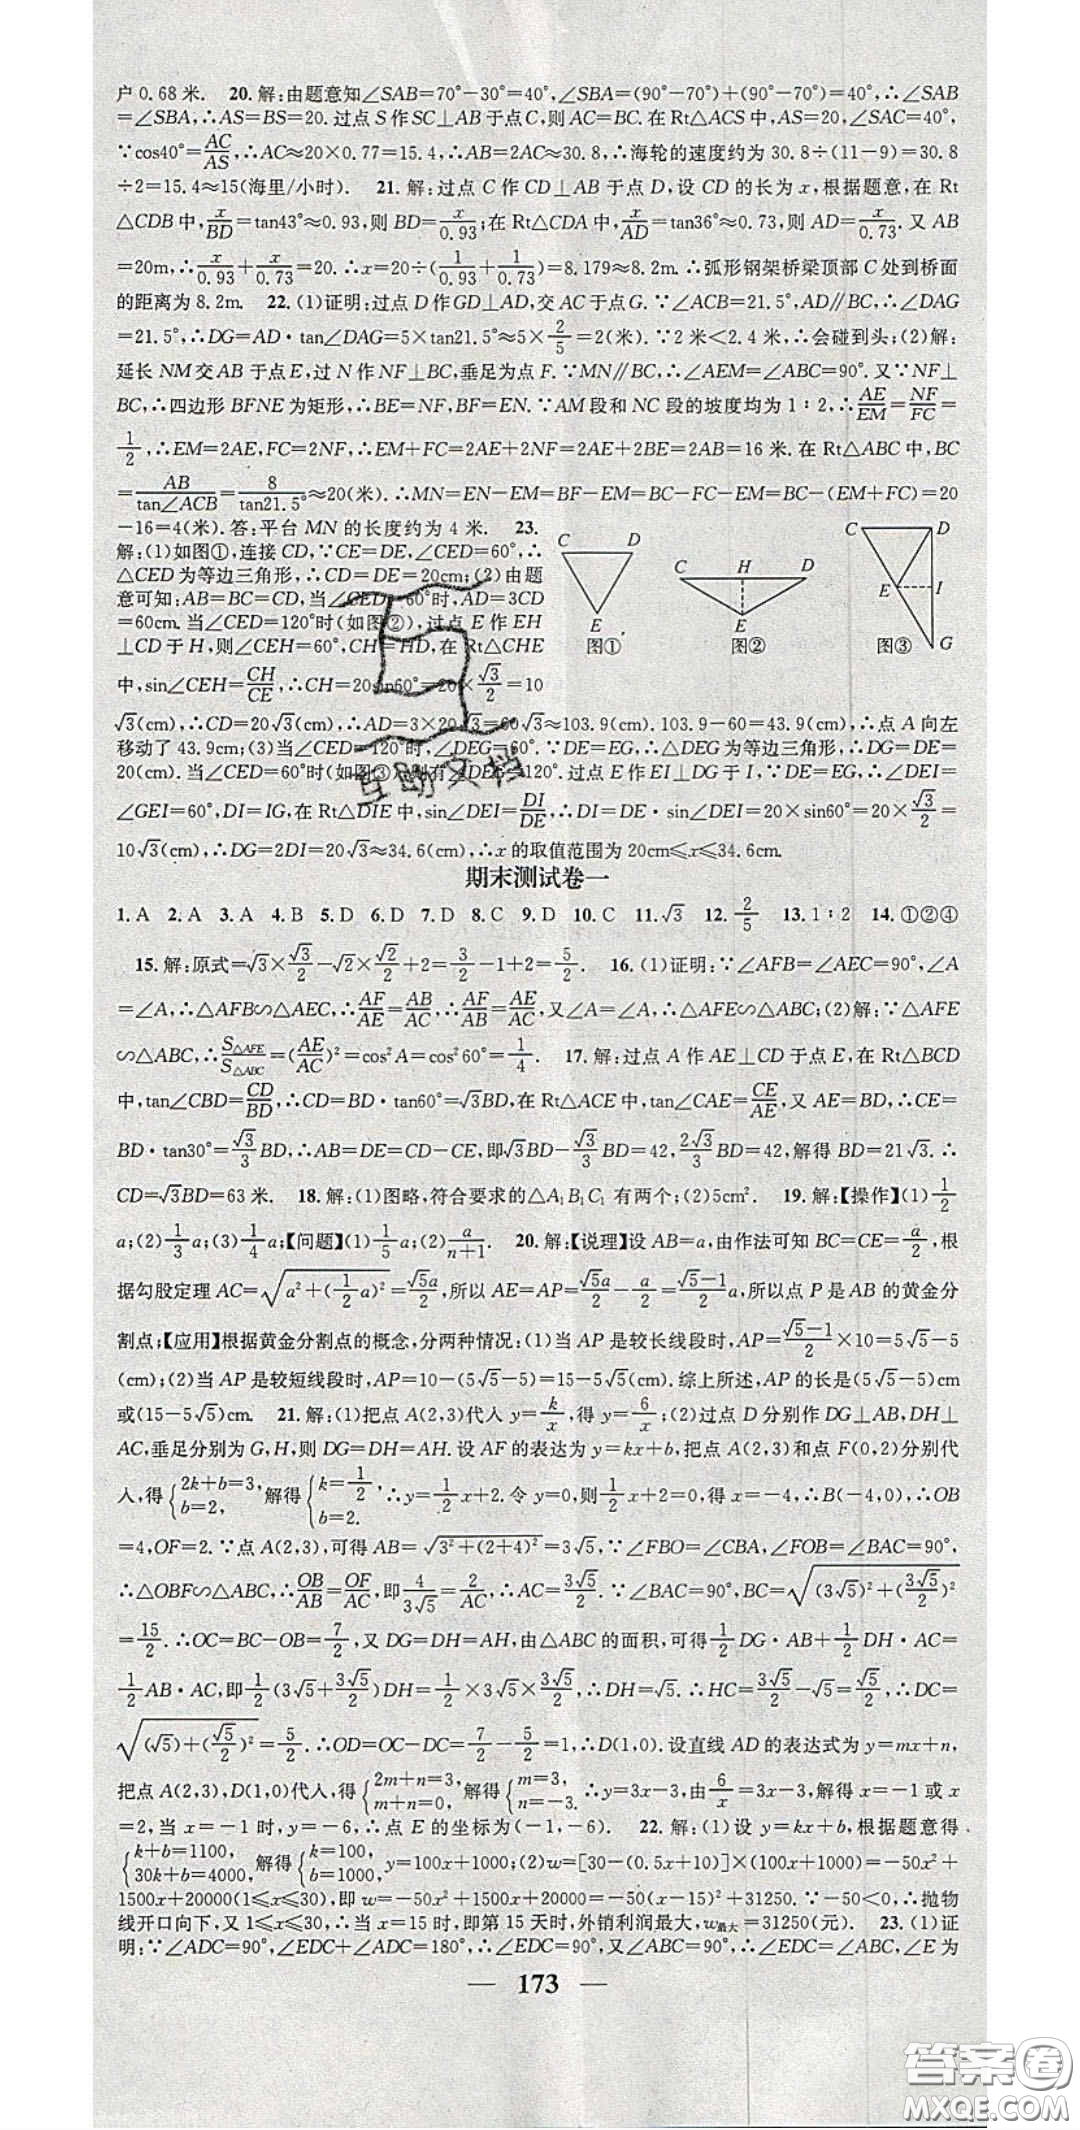 户0.68米. 20.解:由题意知∠SAB=70°-30°=40°,∠SBA=(90°-70°)+(90°-70°)=40°,∴∠SAB
=∠SBA,∴AS=BS=20.过点S作SC⊥AB于点C,则AC=BC.在Rt△ACS中,AS=20,∠SAC=40°,
∵cos40°=AC/AS,∴AC≈20×0.77=15.4,∴AB=2AC≈30.8,∴海轮的速度约为30.8÷(11-9)=30.8
÷2=15.4≈15(海里/小时). 21.解:过点C作CD⊥AB于点D,设CD的长为x,根据题意,在Rt
△CDB中,x/BD=tan43°≈0.93,则BD=x/0.93;在Rt△CDA中,x/AD=tan36°≈0.73,则AD=x/0.73.又AB
=20m,∴x/0.93+x/0.73=20.∴x=20÷(1/0.93+1/0.73)=8.179≈8.2m.∴弧形钢架桥梁顶部C处到桥面
的距离为8.2m. 22.(1)证明:过点D作GD⊥AD,交AC于点G.∵∠ACB=21.5°,AD∥BC,∴∠DAG
=21.5°,∴DG=AD·tan∠DAG=5×tan21.5°≈5×2/5=2(米).∵2米<2.1米,∴会碰到头;(2)解:
延长NM交AB于点E,过N作NF⊥BC,垂足为点F.∵MN∥BC,∴∠AEM=∠ABC=90°.又∵NF⊥
BC,∴四边形BFNE为矩形,∴BE=NF,BF=EN.∵AM段和NC段的坡度均为1∶2,∴AE/EM=NF/FC=
1/2,∴EM=2AE,FC=2NF,∴EM+FC=2AE+2NF=2AE+2BE=2AB=16米.在Rt△ABC中,BC
=AB/tan∠ACB=8/tan21.5°≈20(米).∴MN=EN-EM=BF-EM=BC-FC-EM=BC-(EM+FC)=20
-16=4(米).答:平台MN的长度约为4米. 23.
解:(1)如图①,连接CD,∵CE=DE,∠CED=60°,∴
△CED为等边三角形,∴CD=DE=20cm;(2)由题
意可知:AB=BC=CD,当∠CED=60°时,AD=3CD
=60cm.当∠CED=120°时(如图②),过点E作EH
⊥CD于H,则∠CEH=60°,CH=HD,在Rt△CHE
中,sin∠CEH=CH/CE,∴CH=20sin60°=20×√3/2=10
C D E 图①
C H D E 图②
C D E I G 图③
√3(cm),∴CD=20√3(cm),∴AD=3×20√3=60√3≈103.9(cm).103.9-60=43.9(cm),∴点A向左
移动了43.9cm;(3)当∠CED=120°时,∠DEG=60°.∵DE=EG,∴△DEG为等边三角形,∴DG=DE=
20(cm).当∠CED=60°时(如图③),则有∠DEG=120°.过点E作EI⊥DG于I,∵DE=EG,∴∠DEI=
∠GEI=60°,DI=IG,在Rt△DIE中,sin∠DEI=DI/DE,∴DI=DE·sin∠DEI=20×sin60°=20×√3/2=
10√3(cm),∴DG=2DI=20√3≈34.6(cm),∴x的取值范围为20cm≤x≤34.6cm.
互助文档
期末测试卷一
1.A 2.A 3.A 4.B 5.D 6.D 7.D 8.C 9.D 10.C 11.√3 12.2/5 13.1∶2 14.①②④
15.解:原式=√3×√3/2-√2×√2/2+2=3/2-1+2=5/2. 16.(1)证明:∵∠AFB=∠AEC=90°,∠A
=∠A,∴△AFB∽△AEC,∴AF/AE=AB/AC,∴AF/AB=AE/AC,又∠A=∠A,∴△AFE∽△ABC;(2)解:∵△AFE
∽△ABC,∴S△AFE/S△ABC=(AE/AC)²=cos²A=cos²60°=1/4. 17.解:过点A作AE⊥CD于点E,在Rt△BCD
中,tan∠CBD=CD/BD,∴CD=BD·tan60°=√3BD,在Rt△ACE中,tan∠CAE=CE/AE,又AE=BD,∴CE=
BD·tan30°=√3/3BD,∴AB=DE=CD-CE,即√3BD-√3/3BD=42,2√3/3BD=42,解得BD=21√3.∴
CD=√3BD=63米. 18.解:(1)图略,符合要求的△A₁B₁C₁有两个;(2)5cm². 19.解:【操作】(1)1/2
a;(2)1/3a;(3)1/4a;【问题】(1)1/5a;(2)a/(n+1). 20.解:【说理】设AB=a,由作法可知BC=CE=a/2,根
据勾股定理AC=√(a²+(1/2a)²)=√5a/2,所以AE=AP=√5a/2-a/2=(√5-1)/2a,所以点P是AB的黄金分
割点;【应用】根据黄金分割点的概念,分两种情况:(1)当AP是较长线段时,AP=(√5-1)/2×10=5√5-5
(cm);(2)当AP是较短线段时,AP=10-(5√5-5)=15-5√5(cm).综上所述,AP的长是(5√5-5)cm
或(15-5√5)cm. 21.解:(1)把点A(2,3)代人y=k/x,得y=6/x;(2)过点D分别作DG⊥AB,DH⊥
AC,垂足分别为G,H,则DG=DH=AH.设AF的表达为y=kx+b,把点A(2,3)和点F(0,2)分别代
人,得{2k+b=3, b=2, 解得{k=1/2, b=2. ∴y=1/2x+2.令y=0,则1/2x+2=0,得x=-4,∴B(-4,0),∴OB
=4,OF=2.∵点A(2,3),可得AB=√(3²+(2+4)²)=3√5,∵∠FBO=∠CBA,∠FOB=∠BAC=90°,
∴△OBF∽△ABC,∴OB/AB=OF/AC,即4/3√5=2/AC,∴AC=3√5/2.∵∠BAC=90°,BC=√((3√5)²+(3√5/2)²)
=15/2.∴OC=BC-OB=7/2,又DG=DH=AH,由△ABC的面积,可得1/2DG·AB+1/2DH·AC=
1/2AB·AC,即1/2(3√5+3√5/2)DH=1/2×3√5×3√5/2,∴DH=√5.∴HC=3√5/2-√5=√5/2,∴DC=
√((√5)+(√5/2)²)=5/2.∴OD=OC-DC=7/2-5/2=1,∴D(1,0).设直线AD的表达式为y=mx+n,
把点A(2,3),D(1,0)代人,得{2m+n=3, m+n=0, 解得{m=3, n=-3. ∴y=3x-3,由6/x=3x-3,解得x=-1或x
=2,当x=-1时,y=-6,∴点E的坐标为(-1,-6). 22.解:(1)设y=kx+b,根据题意得
{k+b=1100, 30k+b=4000, 解得{k=100, b=1000, y=100x+1000;(2)w=[30-(0.5x+10)]×(100x+1000)=-50x²+
1500x+20000(1≤x≤30),即w=-50x²+1500x+20000=-50(x-15)²+31250.∵-50<0,∴抛物
线开口向下,又1≤x≤30,∴当x=15时,即第15天时,外销利润最大,w最大=31250(元). 23.(1)证
明:∵∠ADC=90°,∠EDC+∠ADC=180°,∴∠EDC=90°,又∠ABC=90°,∴∠EDC=∠ABC,∠E为
— 173 —
答案圈
MXQE.COM